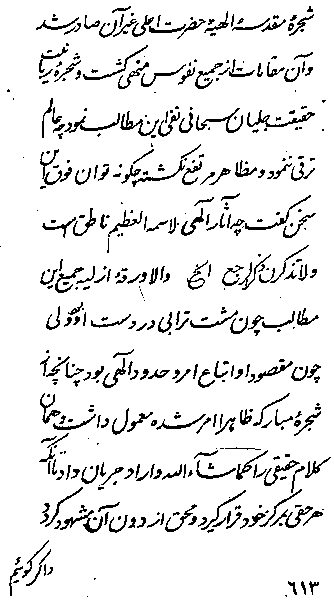 شجرهٔ مقدسه الهیهٔ حضرت اعلی غیر آن صادر شد
و آن مقامات از جمیع نفوس منتهی گشت و شجرهٔ ربانیت
حقیقت جلیان سبحانی نفی این مطالب نمود چه عالم
ترقی نمود و مظاهر مرتفع نگشته چگونه توان فوق این
سخن گفت چه آثار الهی لاسمه العظیم ناطق است
و لاتذکرن ذکر راجع الخ والا ورقهٔ ازلیه جمیع این
مطالب چون مشت ترابی در دست او بودی
چون مقصود او اتباع امر و حدود الهی بود چنانچه از
شجرهٔ مبارکه ظاهرا امر شده معمول داشت و همان
کلام حقیقی را کما شاء الله و اراد جریان داد تا آنکه
هر حقی بمرکز خود قرار گیرد و محق از دون آن مشهود گردد
و اگر گوئیم
٦١٣